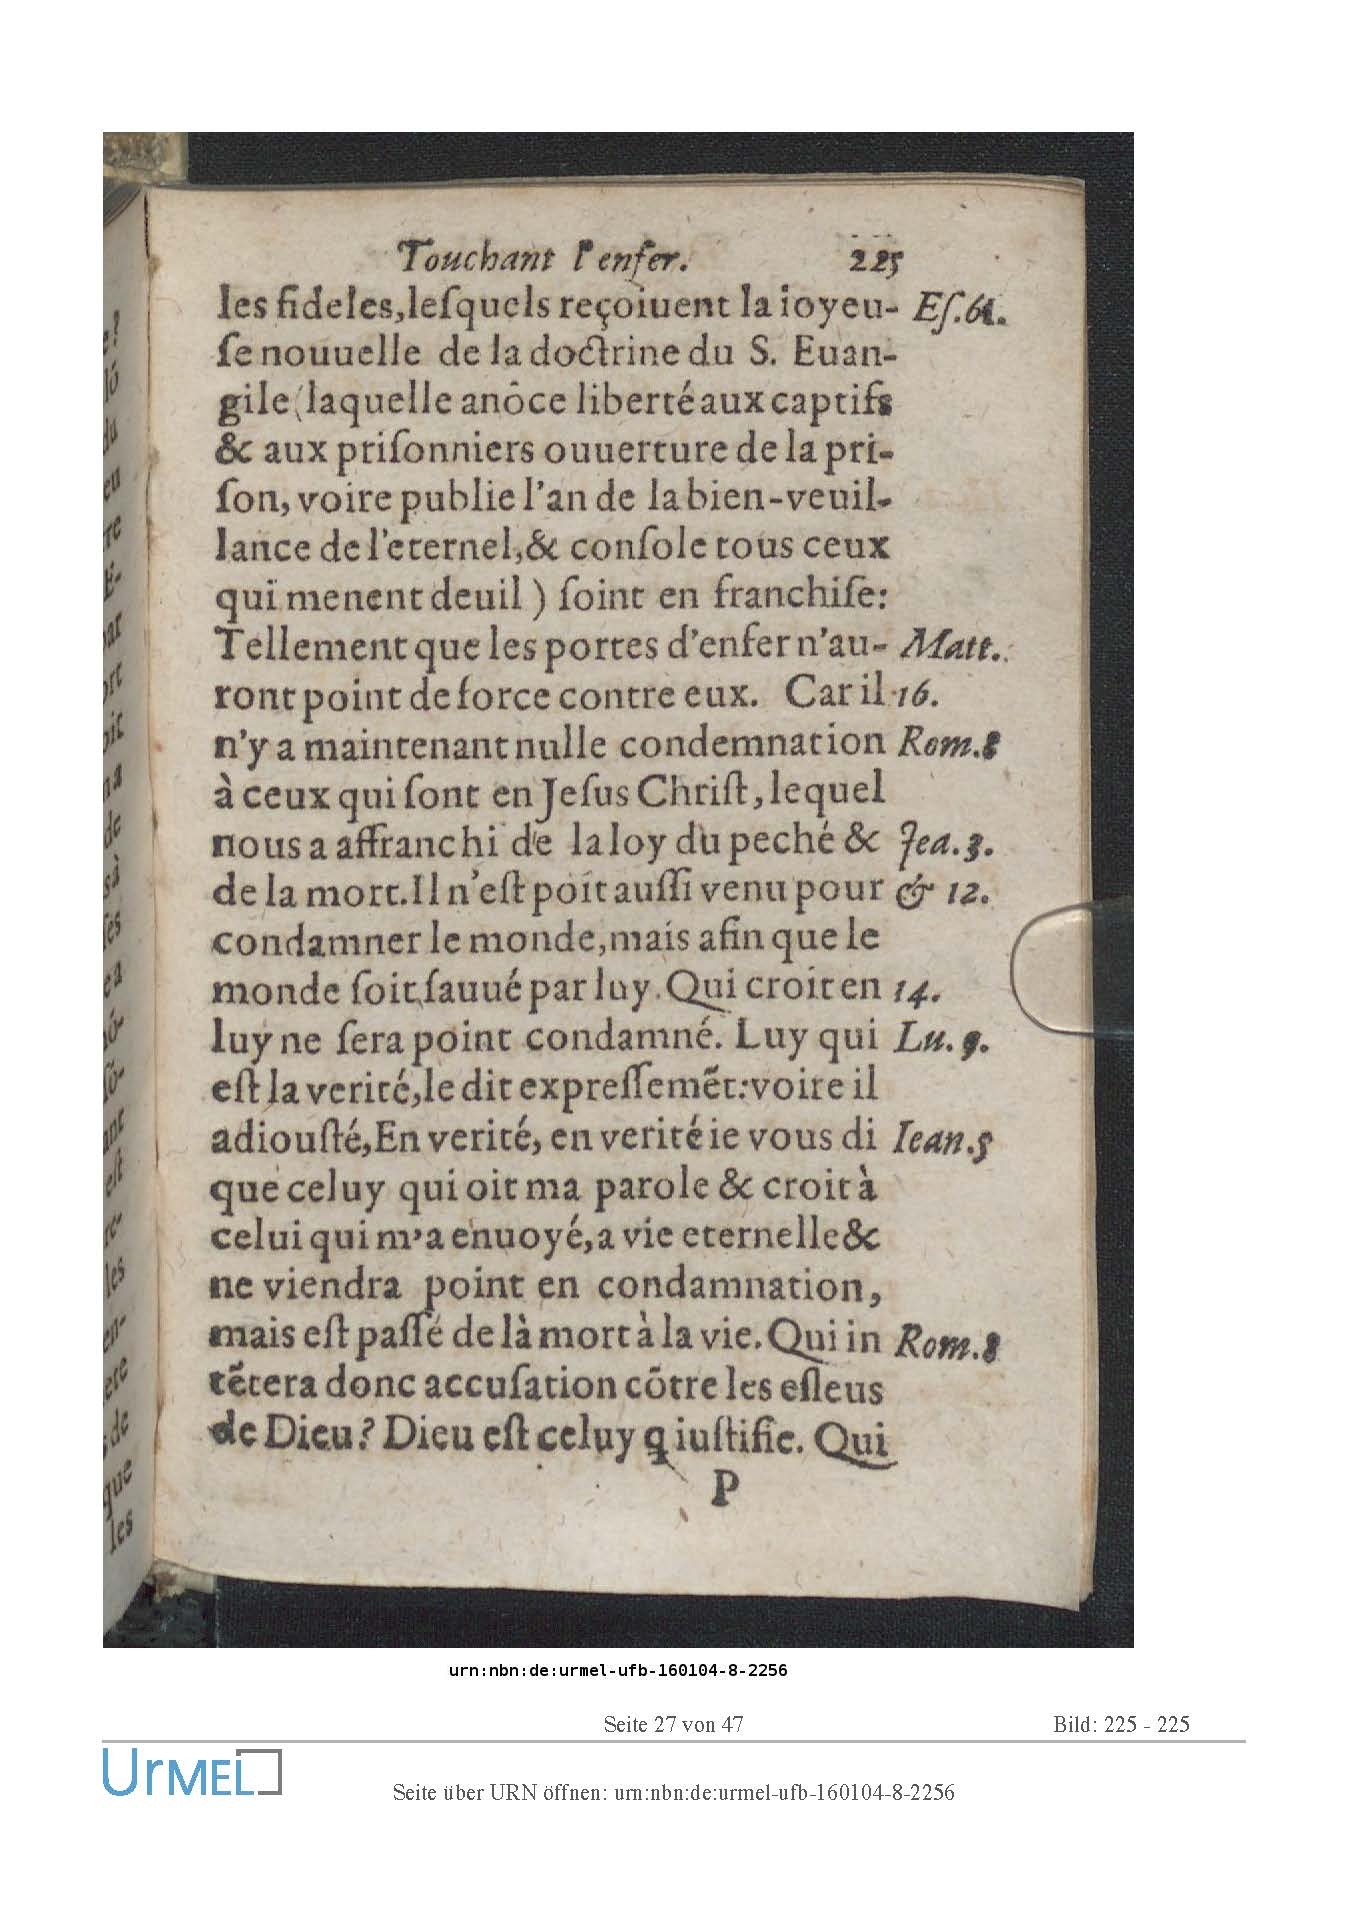 Touchant l'enfer. 225
les fideles,leſquels reçoiuent la ioyeu- Eſ.61.
ſe nouuelle de la doctrine du S. Euan-
gile (laquelle anôce liberté aux captifs
& aux priſonniers ouuerture de la pri-
ſon, voire publie l'an de la bien-veuil-
lance de l'eternel,& conſole tous ceux
qui menent deuil ) ſoint en franchiſe:
Tellement que les portes d'enfer n'au- Matt.
ront point de force contre eux. Car il 16.
n'y a maintenant nulle condemnation Rom.8
à ceux qui ſont en Jeſus Chriſt, lequel
nous a affranchi de la loy du peché & Jea.3.
de la mort.Il n'eſt poit auſſi venu pour & 12.
condamner le monde,mais afin que le
monde ſoit ſauué par luy. Qui croit en 14.
luy ne ſera point condamné. Luy qui Lu.9.
eſt la verité,le dit expreſſemẽt:voire il
adiouſté,En verité, en verité ie vous di Iean.5
que celuy qui oit ma parole & croit à
celui qui m'a enuoyé,a vie eternelle &
ne viendra point en condamnation,
mais eſt paſſé de là mort à la vie.Qui in Rom.8
tẽtera donc accuſation cõtre les eſleus
de Dieu? Dieu eſt celuy q iuſtifie. Qui
P
urn:nbn:de:urmel-ufb-160104-8-2256
Seite 27 von 47 Bild: 225 - 225
UrMEL
Seite über URN öffnen: urn:nbn:de:urmel-ufb-160104-8-2256